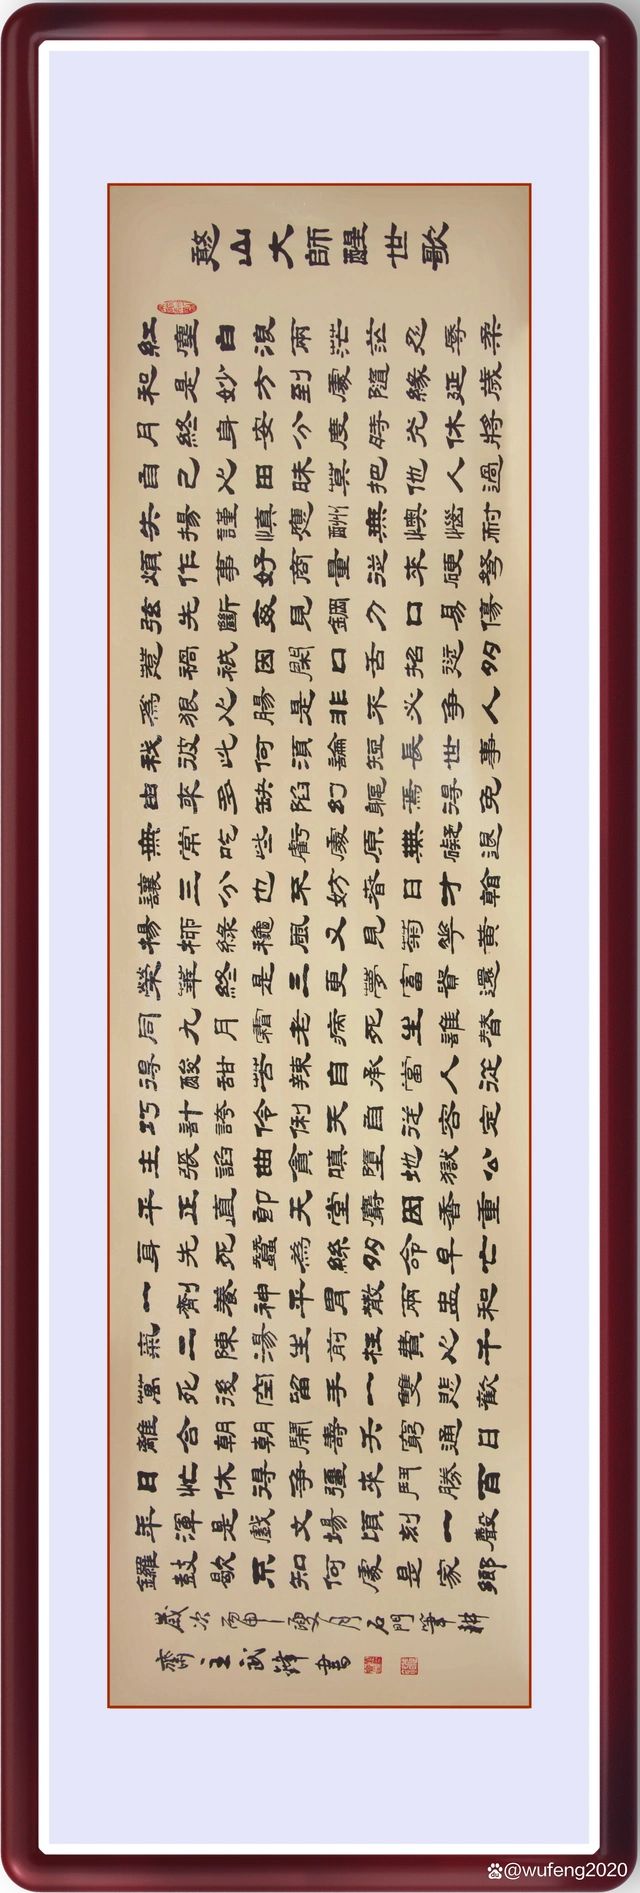 憨山大師醒世歌
紅塵白浪兩茫茫忍辱柔
和是妙方到處隨緣延歲
月終身安分度時光休將
自己心田昧莫把他人過
失揚謹慎應酬無懊惱耐
煩作事好商量從來硬弩
弦先斷每見鋼刀口易傷
惹禍祇因閑口舌招愆多
為狠心腸是非不必爭人
我彼此何須論短長世事
由來多缺陷幻軀焉得免
無常吃些虧處原無礙退
讓三分也不妨春日才翰
楊柳綠穐風又見菊花黃
榮華終是三更夢富貴還
同九月霜老病死生誰替
得酸甜苦辣自承當人從
巧計誇伶俐天自從容定
主張諂曲貪瞋墮地獄公
平正直即天堂麝因香重
身先死蠶為絲多命早亡
一劑養神平胃散兩盅和
氣二陳湯生前枉費心千
萬死後空留手一雙悲歡
離合朝朝鬧壽夭窮通日
日忙休得爭彊來鬥勝百
年渾是戲文場頃刻一聲
鑼鼓歇不知何處是家鄉
歲次丙申月石門筆耕
齋主武鋒書
@wufeng2020